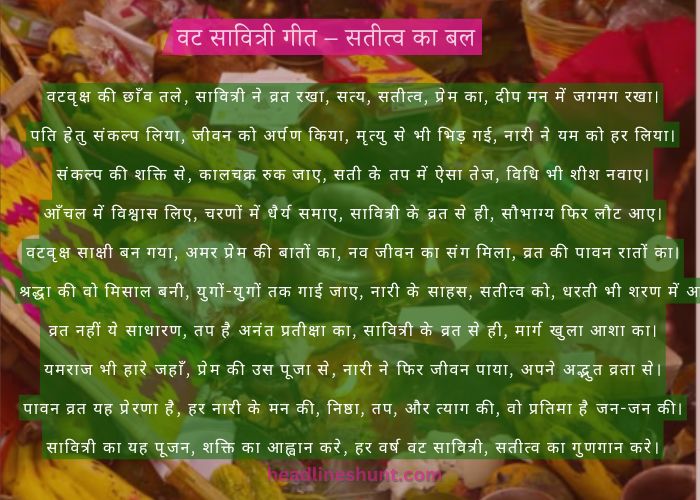 वट सावित्री गीत – सतीत्व का बल
वटवृक्ष की छाँव तले, सावित्री ने व्रत रखा, सत्य, सतीत्व, प्रेम का, दीप मन में जगमग रखा।
पति हेतु संकल्प लिया, जीवन को अर्पण किया, मृत्यु से भी भिड़ गई, नारी ने यम को हर लिया।
संकल्प की शक्ति से, कालचक्र रुक जाए, सती के तप में ऐसा तेज, विधि भी शीश नवाए।
आँचल में विश्वास लिए, चरणों में धैर्य समाए, सावित्री के व्रत से ही, सौभाग्य फिर लौट आए।
वटवृक्ष साक्षी बन गया, अमर प्रेम की बातों का, नव जीवन का संग मिला, व्रत की पावन रातों का।
श्रद्धा की वो मिसाल बनी, युगों-युगों तक गाई जाए, नारी के साहस, सतीत्व को, धरती भी शरण में
व्रत नहीं ये साधारण, तप है अनंत प्रतीक्षा का, सावित्री के व्रत से ही, मार्ग खुला आशा का।
यमराज भी हारे जहाँ, प्रेम की उस पूजा से, नारी ने फिर जीवन पाया, अपने अद्भुत व्रता से।
पावन व्रत यह प्रेरणा है, हर नारी के मन की, निष्ठा, तप, और त्याग की, वो प्रतिमा है जन-जन की।
सावित्री का यह पूजन, शक्ति का आह्वान करे, हर वर्ष वट सावित्री, सतीत्व का गुणगान करे।
headlineshunt.com